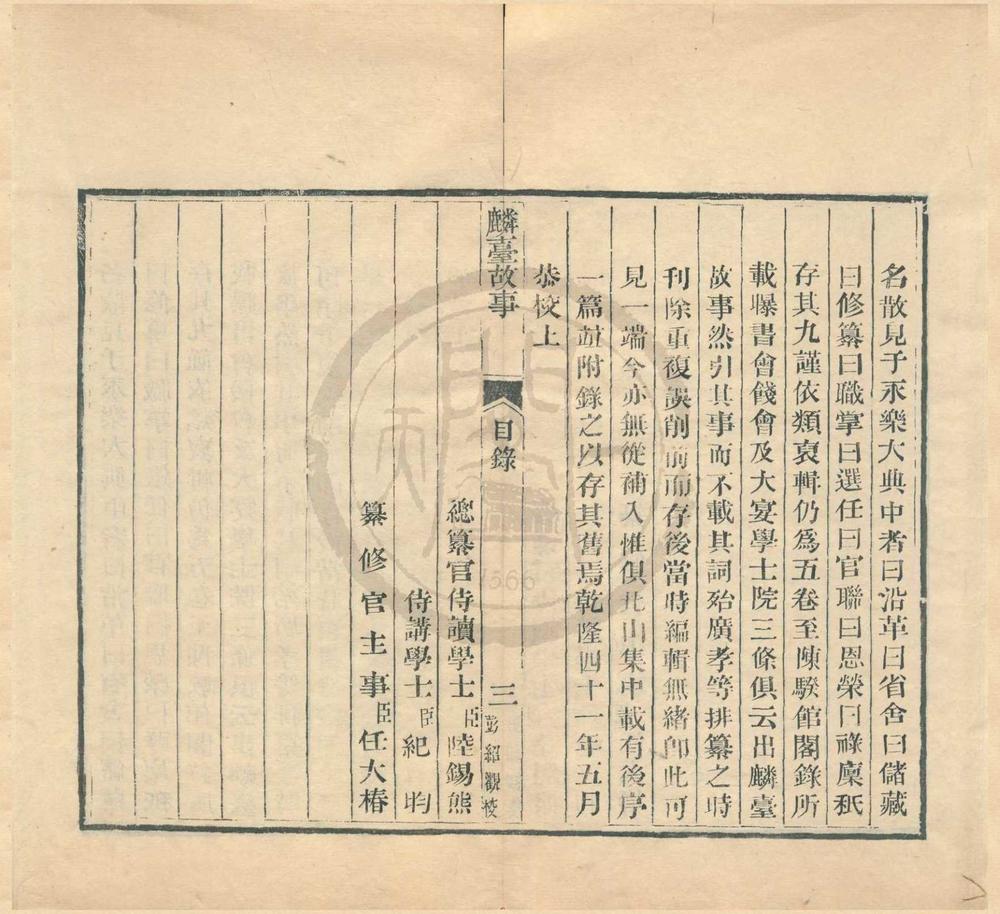 名散見于永樂大典中者曰沿革曰省舍曰儲藏
曰修纂曰職掌曰選任曰官聯曰恩榮曰祿廩秖
存其九謹依類裒輯仍爲五卷至陳騤館閣錄所
載曝書會餞會及大宴學士院三條俱云出麟臺
故事然引其事而不載其詞殆廣孝等排纂之時
刊除重複誤削前而存後當時編輯無緒卽此可
見一端今亦無從補入惟俱北山集中載有後序
一篇並附錄之以存其舊焉乾隆四十一年五月
恭校上
麟臺故事 目錄 三 彭紹觀校
總纂官侍讀學士臣陸錫熊
侍講學士臣紀昀
纂修官主事臣任大椿
1566